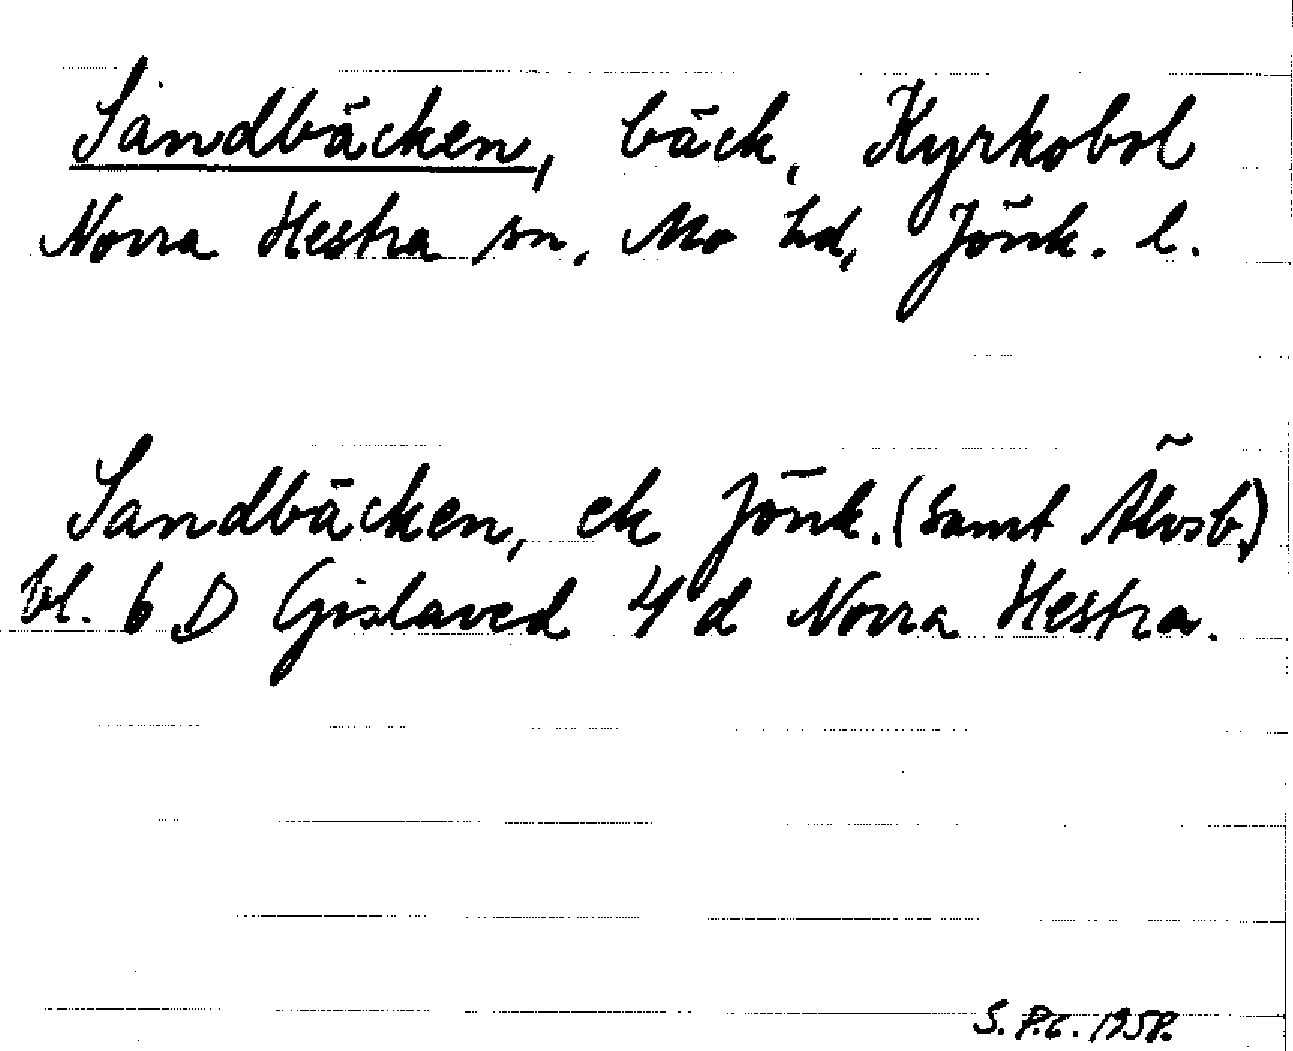 Sandbäcken, bäck, Kyrkobol
Norra Hestra sn, Mo hd, Jönk. l.
Sandbäcken, ek Jönk. (samt Älvsb.)
bl. 6 D Gislaved 4 d Norra Hestra.
S.